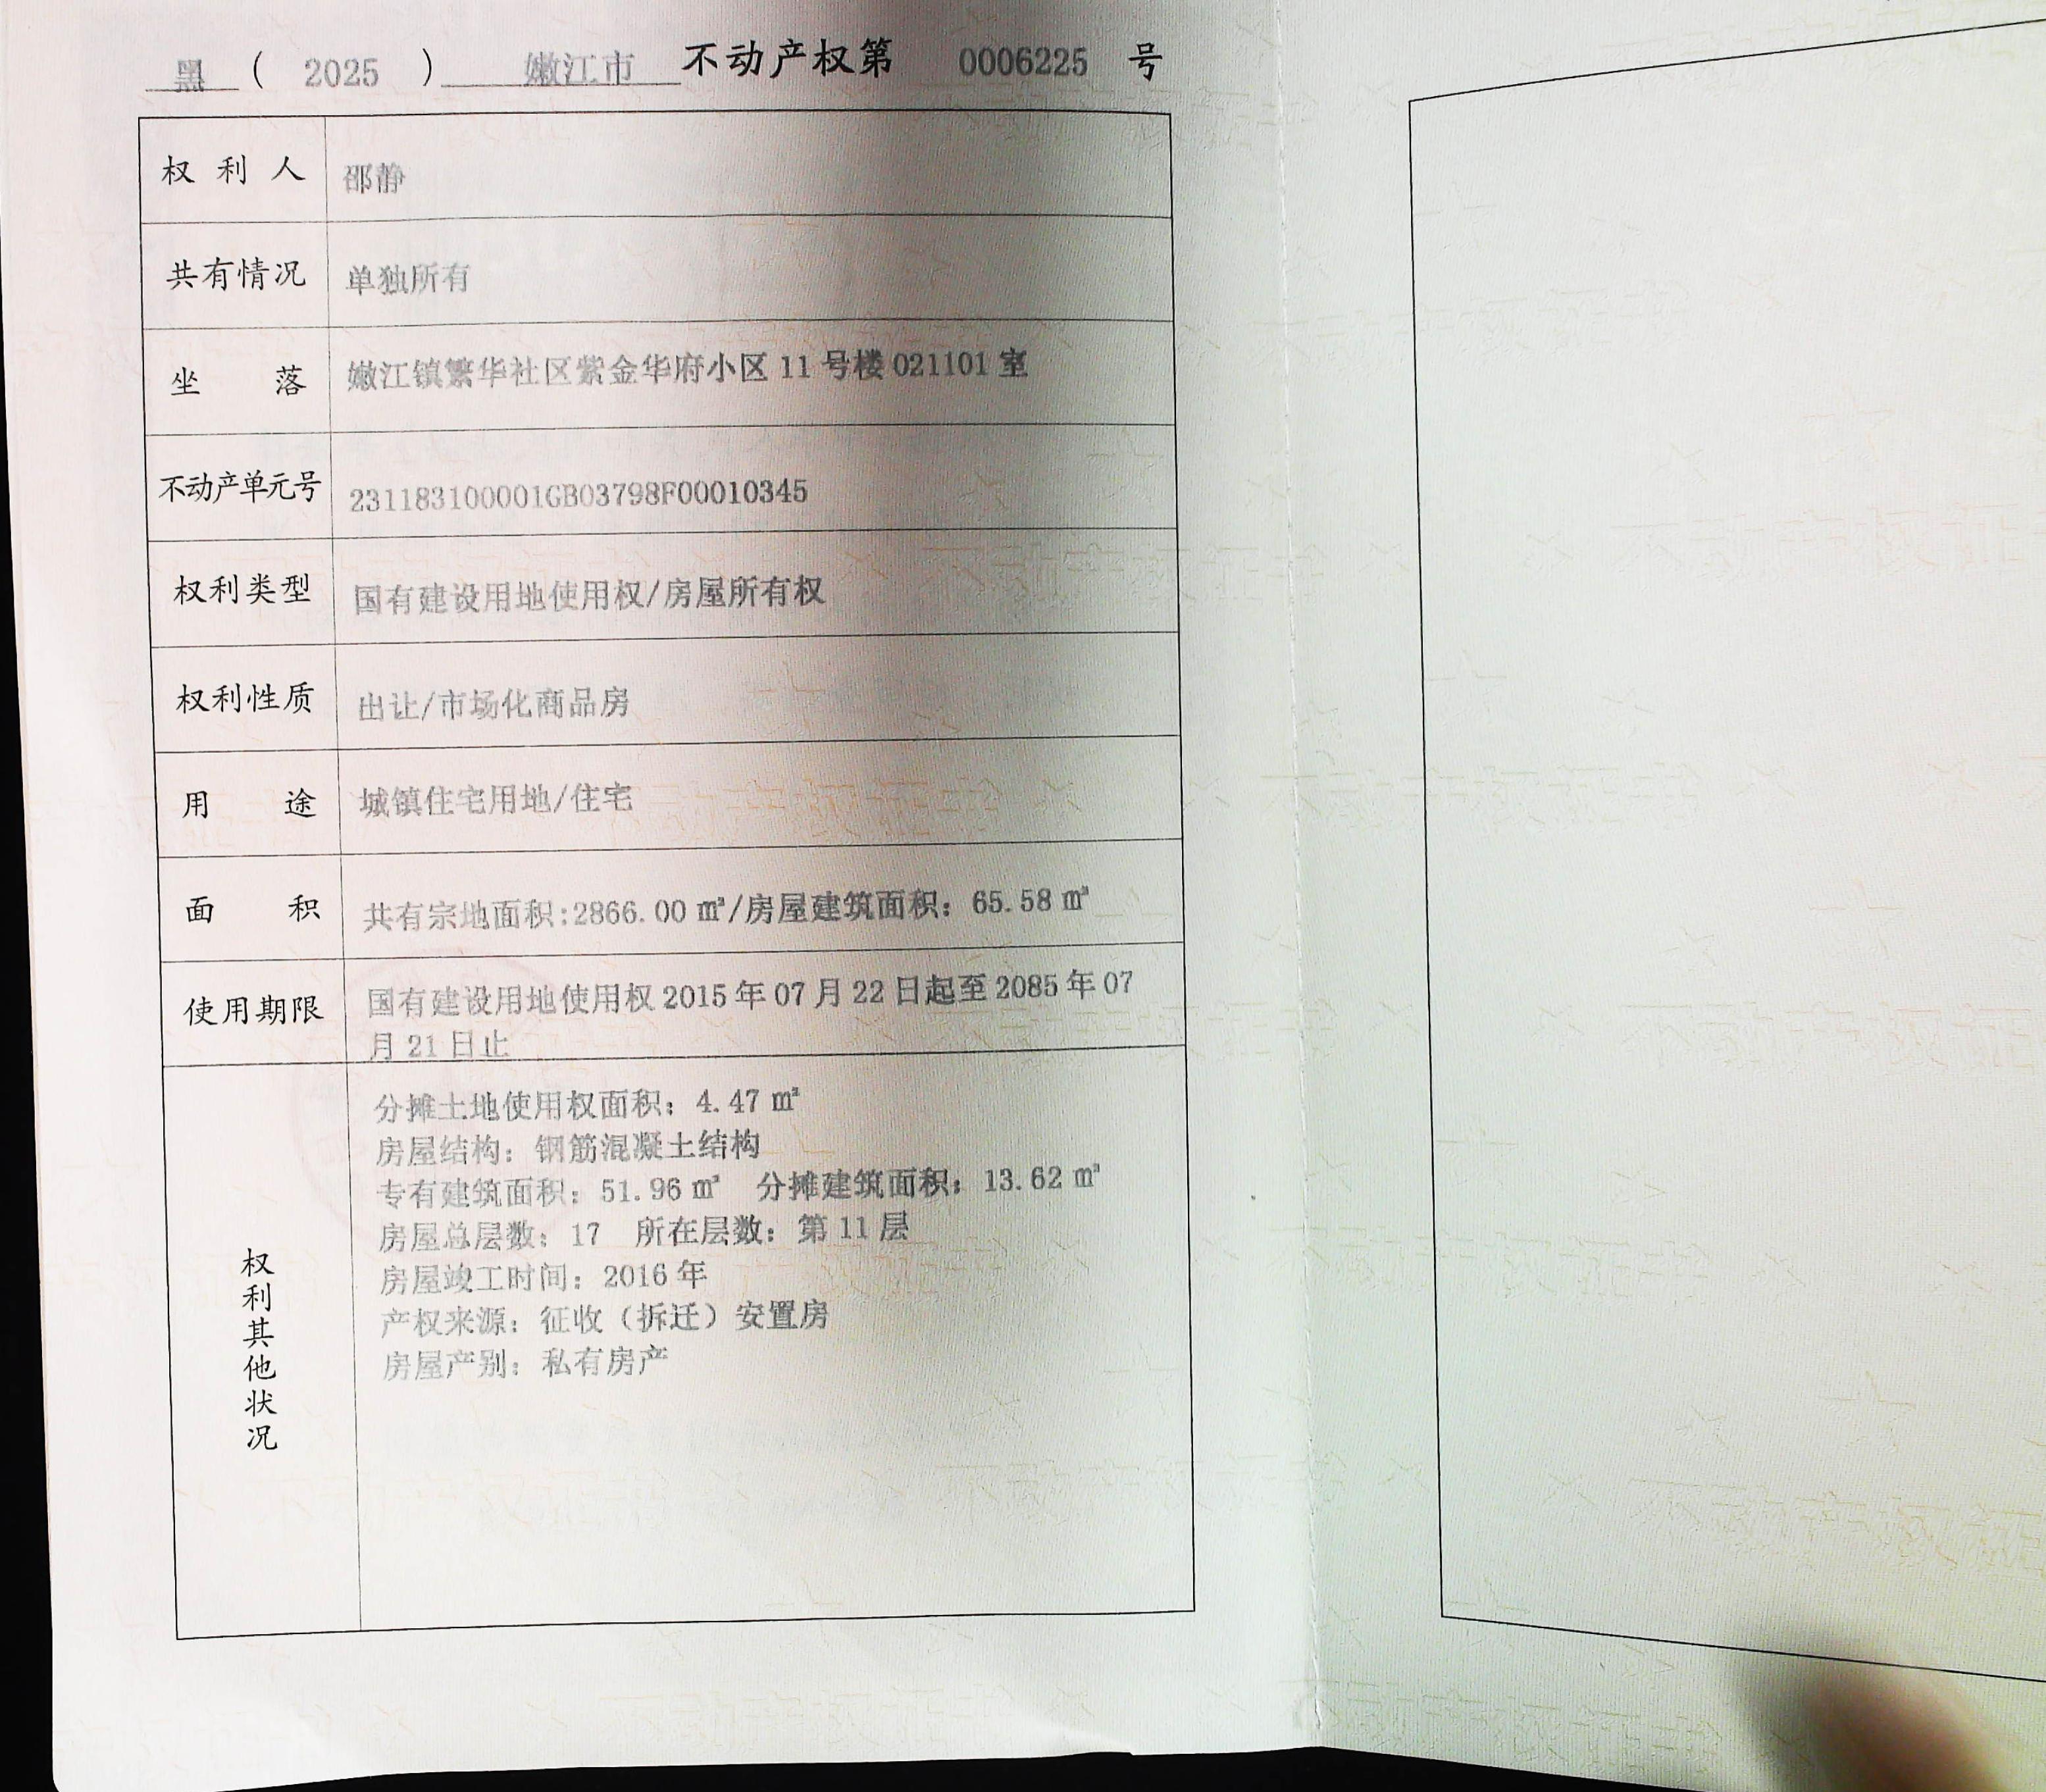 黑 ( 2025 ) 嫩江市 不动产权第 0006225 号
权利人 邵静
共有情况 单独所有
坐落 嫩江镇繁华社区紫金华府小区 11 号楼 021101 室
不动产单元号 231183100001GB03798F00010345
权利类型 国有建设用地使用权/房屋所有权
权利性质 出让/市场化商品房
用途 城镇住宅用地/住宅
面积 共有宗地面积:2866.00 ㎡/房屋建筑面积：65.58 ㎡
使用期限 国有建设用地使用权 2015 年 07 月 22 日起至 2085 年 07
月 21 日止
权利其他状况
分摊土地使用权面积：4.47 ㎡
房屋结构：钢筋混凝土结构
专有建筑面积：51.96 ㎡ 分摊建筑面积：13.62 ㎡
房屋总层数：17 所在层数：第 11 层
房屋竣工时间：2016 年
产权来源：征收（拆迁）安置房
房屋产别：私有房产